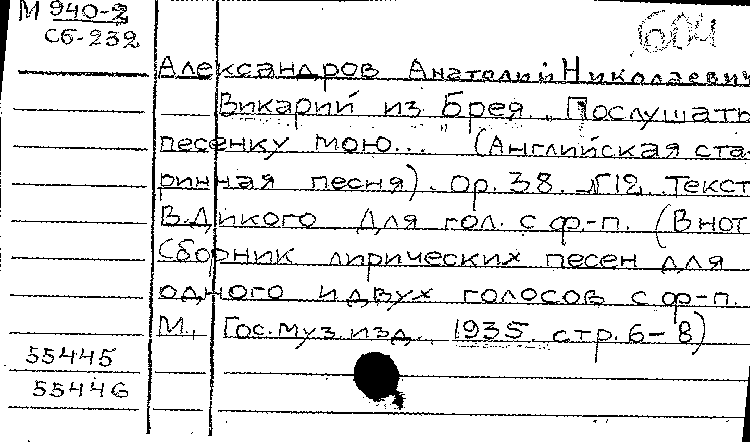 М 940-2
Сб-232
604
Александров Анатолий Николаевич
Викарий из Брея. „Послушать
песенку мою... (Английская ста-
ринная песня). Ор. 38. №12. Текст
В. Дикого Для гол. с ф.-п. (В нот.
Сборник лирических песен для
одного и двух голосов с ф-п.
М., Гос. муз. изд., 1935. стр. 6-8)
55445
55446